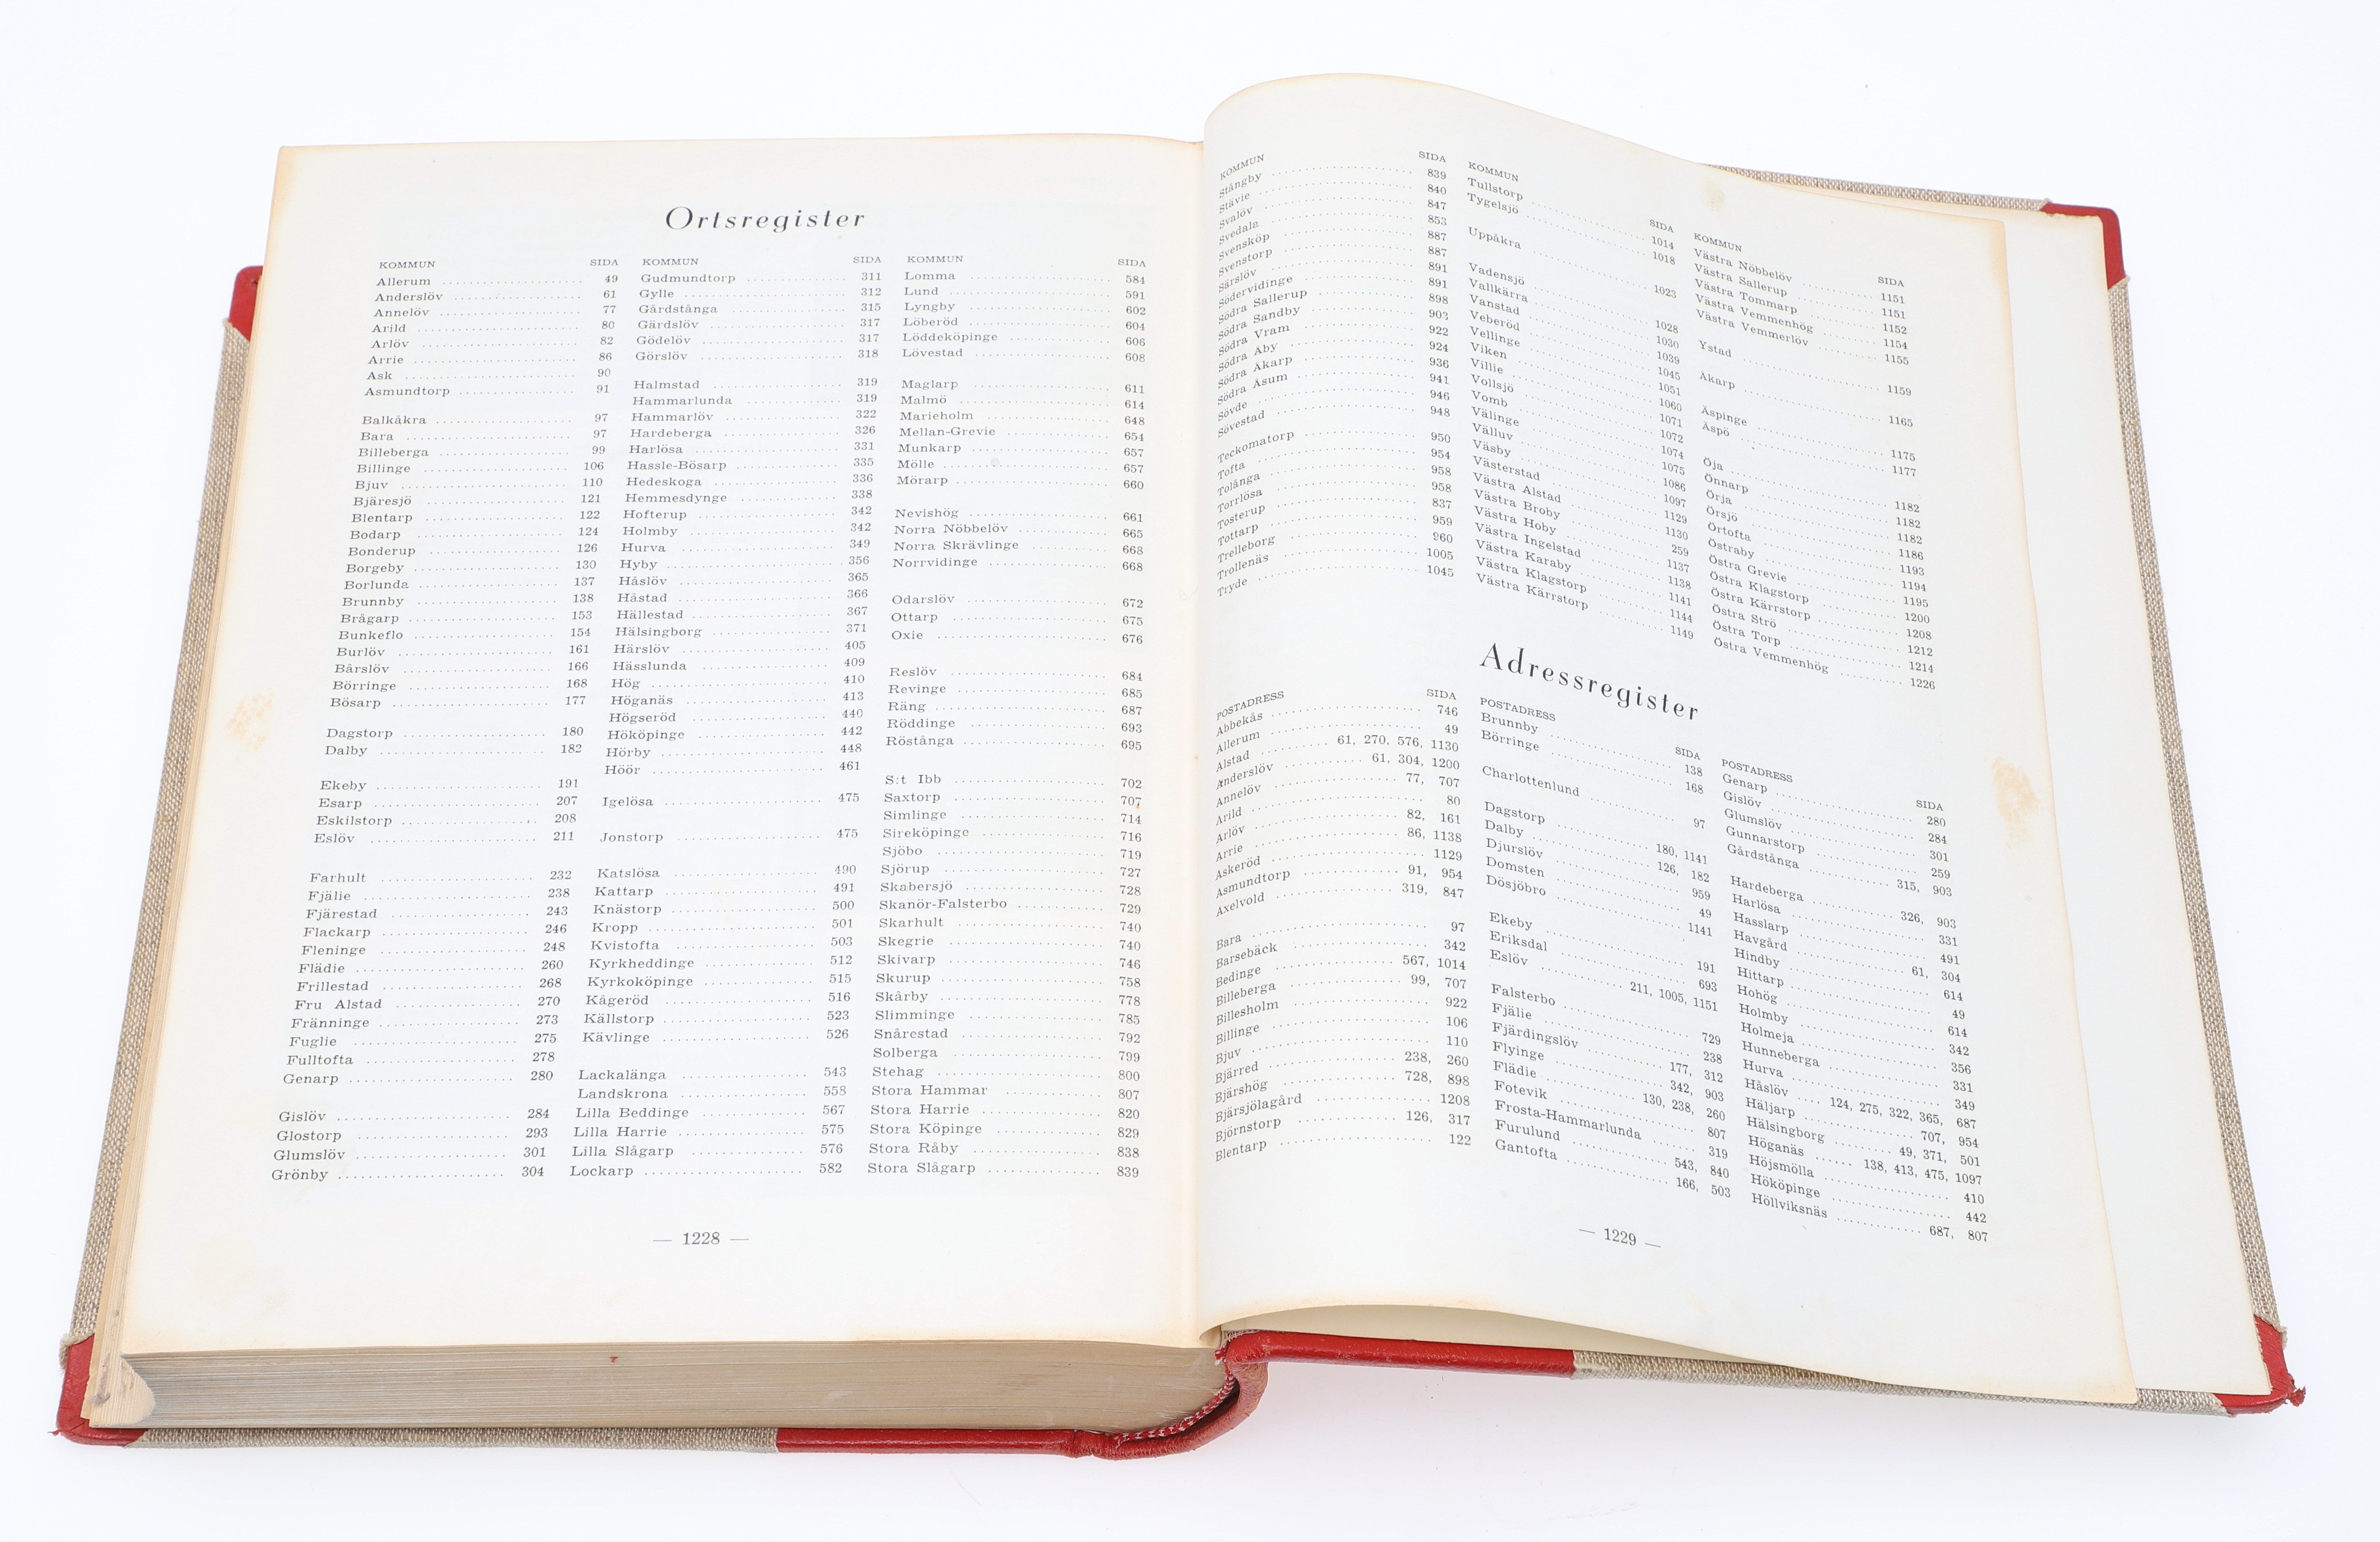 Ortsregister
KOMMUN SIDA
Allerum 49
Anderslöv 61
Annelöv 77
Arild 80
Arlöv 82
Arrie 86
Ask 90
Asmundtorp 91
Balkåkra 97
Bara 97
Billeberga 99
Billinge 106
Bjuv 110
Bjäresjö 121
Blentarp 122
Bodarp 124
Bonderup 126
Borgeby 130
Borlunda 137
Brunnby 138
Brågarp 153
Bunkeflo 154
Burlöv 161
Bårslöv 166
Börringe 168
Bösarp 177
Dagstorp 180
Dalby 182
Ekeby 191
Esarp 207
Eskilstorp 208
Eslöv 211
Farhult 232
Fjälie 238
Fjärestad 243
Flackarp 246
Fleninge 248
Flädie 260
Frillestad 268
Fru Alstad 270
Fränninge 273
Fuglie 275
Fulltofta 278
Genarp 280
Gislöv 284
Glostorp 293
Glumslöv 301
Grönby 304
KOMMUN SIDA
Gudmundtorp 311
Gylle 312
Gårdstånga 315
Gärdslöv 317
Gödelöv 317
Görslöv 318
Halmstad 319
Hammarlunda 319
Hammarlöv 322
Hardeberga 326
Harlösa 331
Hassle-Bösarp 335
Hedeskoga 336
Hemmesdynge 338
Hofterup 342
Holmby 342
Hurva 349
Hyby 356
Håslöv 365
Håstad 366
Hällestad 367
Hälsingborg 371
Härslöv 405
Hässlunda 409
Hög 410
Höganäs 413
Högseröd 440
Hököpinge 442
Hörby 448
Höör 461
Igelösa 475
Jonstorp 475
Katslösa 490
Kattarp 491
Knästorp 500
Kropp 501
Kvistofta 503
Kyrkheddinge 512
Kyrkoköpinge 515
Kågeröd 516
Källstorp 523
Kävlinge 526
Lackalänga 543
Landskrona 558
Lilla Beddinge 567
Lilla Harrie 575
Lilla Slågarp 576
Lockarp 582
KOMMUN SIDA
Lomma 584
Lund 591
Lyngby 602
Löberöd 604
Löddeköpinge 606
Lövestad 608
Maglarp 611
Malmö 614
Marieholm 648
Mellan-Grevie 654
Munkarp 657
Mölle 657
Mörarp 660
Nevishög 661
Norra Nöbbelöv 665
Norra Skrävlinge 668
Norrvidinge 668
Odarslöv 672
Ottarp 675
Oxie 676
Reslöv 684
Revinge 685
Räng 687
Röddinge 693
Röstånga 695
S:t Ibb 702
Saxtorp 707
Simlinge 714
Sireköpinge 716
Sjöbo 719
Sjörup 727
Skabersjö 728
Skanör-Falsterbo 729
Skarhult 740
Skegrie 740
Skivarp 746
Skurup 758
Skårby 778
Slimminge 785
Snårestad 792
Solberga 799
Stehag 800
Stora Hammar 807
Stora Harrie 820
Stora Köpinge 829
Stora Råby 838
Stora Slågarp 839
— 1228 —
KOMMUN SIDA
Stångby 839
Stävie 840
Svalöv 847
Svedala 853
Svensköp 887
Svenstorp 887
Särslöv 891
Södervidinge 891
Södra Sallerup 898
Södra Sandby 903
Södra Vram 922
Södra Åby 924
Södra Åkarp 936
Södra Åsum 941
Sövde 946
Sövestad 948
Teckomatorp 950
Tofta 954
Tolånga 958
Torrlösa 958
Tosterup 837
Tottarp 959
Trelleborg 960
Trollenäs 1005
Tryde 1045
KOMMUN SIDA
Tullstorp 1014
Tygelsjö 1018
Uppåkra 1023
Vadensjö 1028
Vallkärra 1030
Vanstad 1039
Veberöd 1045
Vellinge 1051
Viken 1060
Villie 1071
Vollsjö 1072
Vomb 1074
Välinge 1075
Välluv 1086
Väsby 1097
Västerstad 1129
Västra Alstad 1130
Västra Broby 259
Västra Hoby 1137
Västra Ingelstad 1138
Västra Karaby 1141
Västra Klagstorp 1144
Västra Kärrstorp 1149
KOMMUN SIDA
Västra Nöbbelöv 1151
Västra Sallerup 1151
Västra Tommarp 1152
Västra Vemmenhög 1154
Västra Vemmerlöv 1155
Ystad 1159
Åkarp 1165
Äspinge 1175
Äspö 1177
Öja 1182
Önnarp 1182
Örja 1182
Örsjö 1186
Örtofta 1193
Östraby 1194
Östra Grevie 1195
Östra Klagstorp 1200
Östra Kärrstorp 1208
Östra Strö 1212
Östra Torp 1214
Östra Vemmenhög 1226
Adressregister
POSTADRESS SIDA
Abbekås 746
Allerum 49
Alstad 61, 270, 576, 1130
Anderslöv 61, 304, 1200
Annelöv 77, 707
Arild 80
Arlöv 82, 161
Arrie 86, 1138
Askeröd 1129
Asmundtorp 91, 954
Axelvold 319, 847
Bara 97
Barsebäck 342
Bedinge 567, 1014
Billeberga 99, 707
Billesholm 922
Billinge 106
Bjuv 110
Bjärred 238, 260
Bjärshög 728, 898
Bjärsjölagård 1208
Björnstorp 126, 317
Blentarp 122
POSTADRESS SIDA
Brunnby 138
Börringe 168
Charlottenlund 97
Dagstorp 180, 1141
Dalby 126, 182
Djurslöv 959
Domsten 49
Dösjöbro 1141
Ekeby 191
Eriksdal 693
Eslöv 211, 1005, 1151
Falsterbo 729
Fjälie 238
Fjärdingslöv 177, 312
Flyinge 342, 903
Flädie 130, 238, 260
Fotevik 807
Frosta-Hammarlunda 319
Furulund 543, 840
Gantofta 166, 503
POSTADRESS SIDA
Genarp 280
Gislöv 284
Glumslöv 301
Gunnarstorp 259
Gårdstånga 315, 903
Hardeberga 326, 903
Harlösa 331
Hasslarp 491
Havgård 61, 304
Hindby 614
Hittarp 49
Hohög 614
Holmby 342
Holmeja 356
Hunneberga 331
Hurva 349
Håslöv 124, 275, 322, 365, 687
Häljarp 707, 954
Hälsingborg 49, 371, 501
Höganäs 138, 413, 475, 1097
Höjsmölla 410
Hököpinge 442
Höllviksnäs 687, 807
— 1229 —